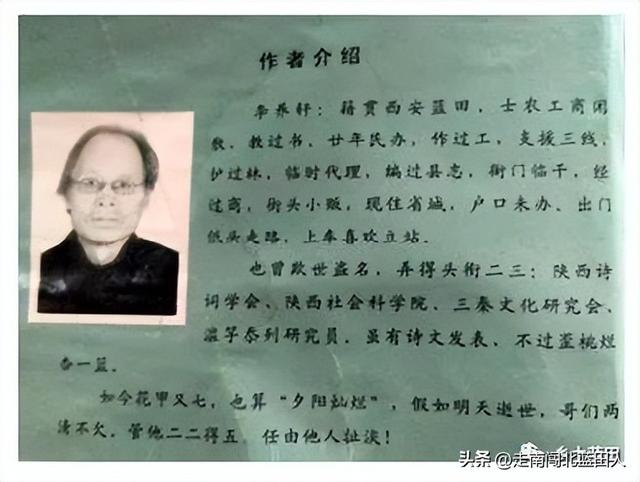 作者介绍
李养轩：籍贯西安蓝田，士农工商闲
散。教过书，廿年民办，作过工，支援三线，
护过林，临时代理，编过县志，衙门临干，经
过商，街头小贩，现住省城，户口未办、出门
低头走路，上车喜欢立站。
也曾欺世盗名，弄得头衔二三：陕西诗
词学会、陕西社会科学院、三秦文化研究会、
滥竽忝列研究员，虽有诗文发表、不过歪桃烂
杏一蓝。
如今花甲又七，也算“夕阳灿烂”，假如明天逝世，哥们两
清不欠。管他二二得五，任由他人扯淡！
头条 @走南闯北蓝田人